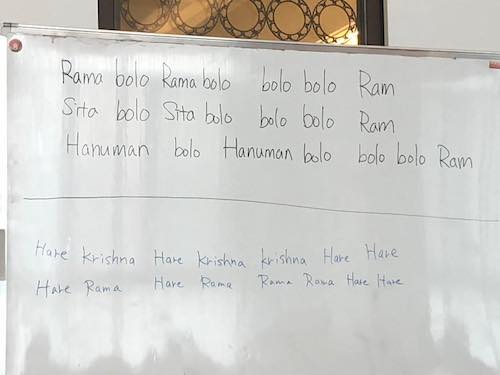 Rama bolo Rama bolo bolo bolo Ram
Sita bolo Sita bolo bolo bolo Ram
Hanuman bolo Hanuman bolo bolo bolo Ram
Hare Krishna Hare Krishna Krishna Hare Hare
Hare Rama Hare Rama Rama Rama Hare Hare